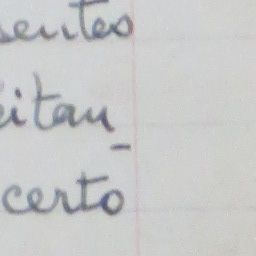 sentes
eitan-
certo